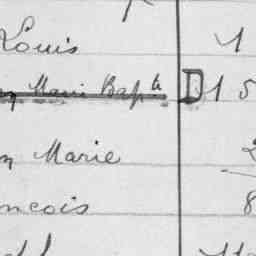 Louis 1
Marie Bapte D 1 5
n Marie 2
ncois 8